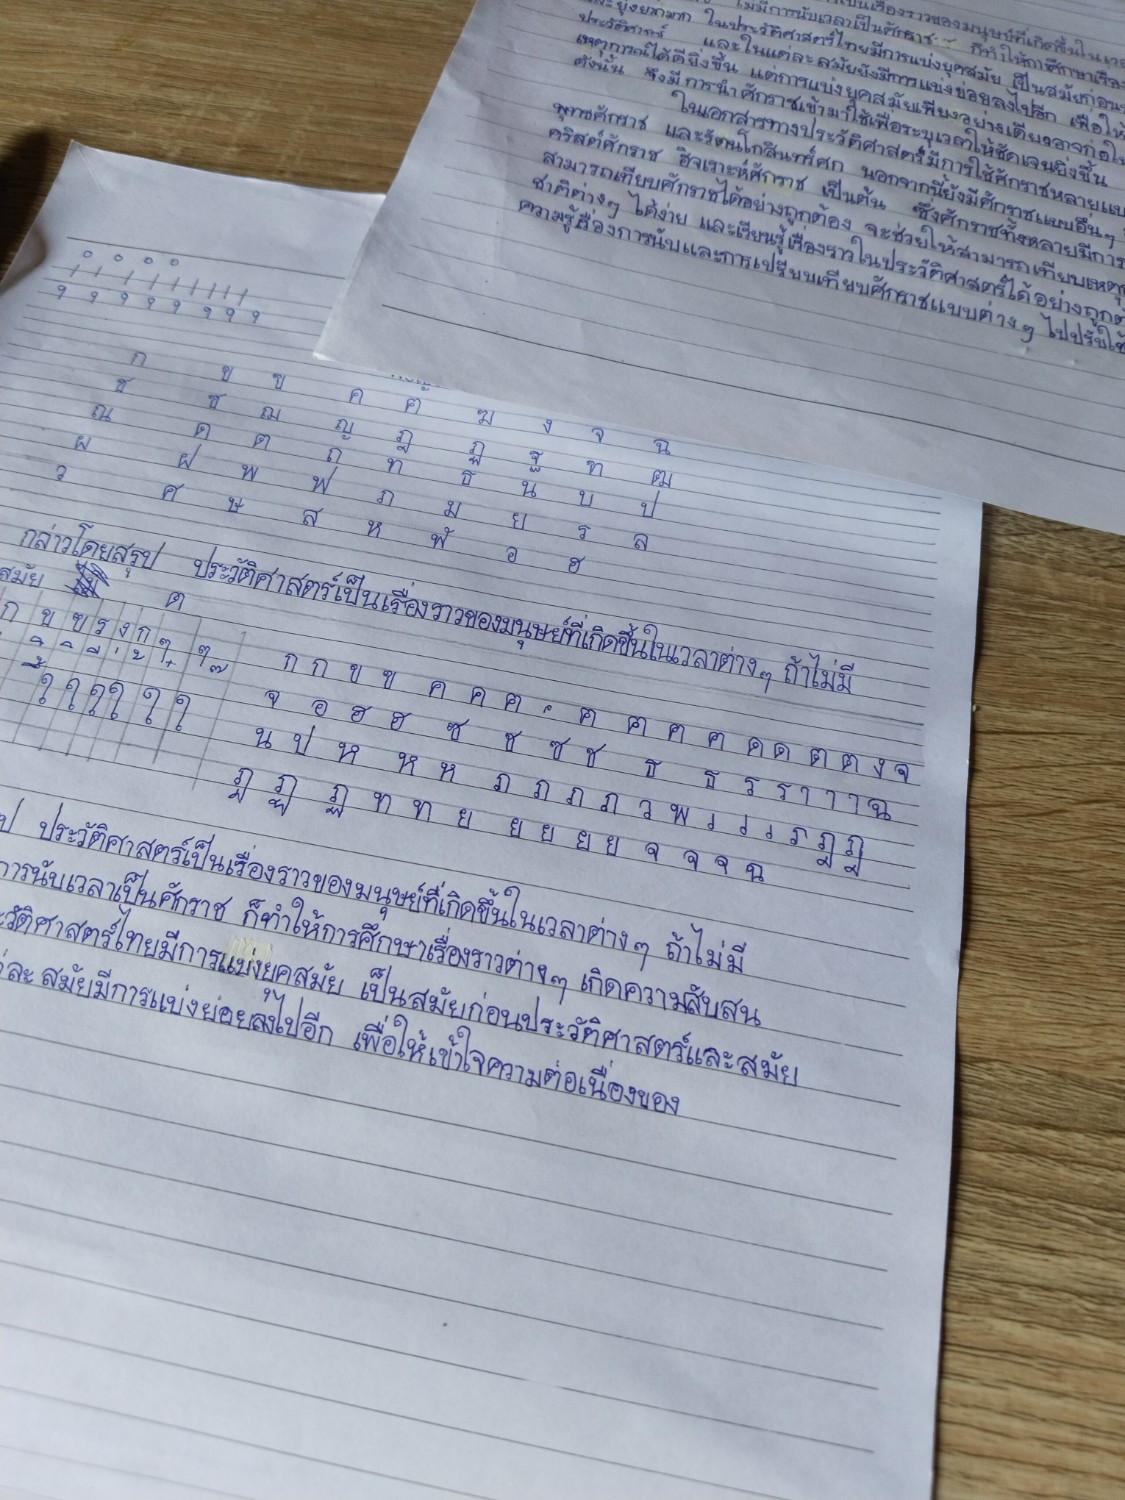 ไม่มีการนับเวลาเป็นศักราช ก็ทำให้การศึกษาเรื่อง
และยุ่งยากมาก ในประวัติศาสตร์ไทยมีการแบ่งยุคสมัย เป็นสมัยก่อน
ประวัติศาสตร์ และในแต่ละสมัยยังมีการแบ่งย่อยลงไปอีก เพื่อให้
เหตุการณ์ได้ดียิ่งขึ้น แต่การแบ่งยุคสมัยเพียงอย่างเดียงอาจก่อให้
ดังนั้น จึงมีการนำศักราชเข้ามาใช้เพื่อระบุเวลาให้ชัดเจนยิ่งขึ้น
ในเอกสารทางประวัติศาสตร์มีการใช้ศักราชหลายแบบ
พุทธศักราช และรัตนโกสินทร์ศก นอกจากนี้ยังมีศักราชแบบอื่นๆ
คริสต์ศักราช ฮิจเราะห์ศักราช เป็นต้น ซึ่งศักราชทั้งหลายมีการ
สามารถเทียบศักราชได้อย่างถูกต้อง จะช่วยให้สามารถเทียบเหตุ
ชาติต่างๆ ได้ง่าย และเรียนรู้เรื่องราวในประวัติศาสตร์ได้อย่างถูกต้
ความรู้เรื่องการนับและการเปรียบเทียบศักราชแบบต่างๆ ไปปรับใช้
ก ข ฃ ค ฅ ฆ ง จ ฉ
ช ซ ฌ ญ ฎ ฏ ฐ ฑ ฒ
ณ ด ต ถ ท ธ น บ ป
ผ ฝ พ ฟ ภ ม ย ร ล
ว ศ ษ ส ห ฬ อ ฮ
กล่าวโดยสรุป ประวัติศาสตร์เป็นเรื่องราวของมนุษย์ที่เกิดขึ้นในเวลาต่างๆ ถ้าไม่มี
สมัย ต
ก ข ข ร ง กู ๆ ๆ
ก ก ข ข ค ค ศ ค ฅ ศ ศ ด ด ต ต ง จ
ใ ใ ใ ใ ใ ใ
จ อ ฮ ฮ ซ ช ซ ช ธ ธ ร ร า า า ฉ
น ป ห ห ห ภ ภ ภ ภ ว พ เ เ เ ร ฎ ฎ
ฎ ฏ ฏ ท ท ย ย ย ย ย จ จ จ ฉ
ป ประวัติศาสตร์เป็นเรื่องราวของมนุษย์ที่เกิดขึ้นในเวลาต่างๆ ถ้าไม่มี
การนับเวลาเป็นศักราช ก็ทำให้การศึกษาเรื่องราวต่างๆ เกิดความสับสน
วัติศาสตร์ไทยมีการแบ่งยุคสมัย เป็นสมัยก่อนประวัติศาสตร์และสมัย
ละสมัยมีการแบ่งย่อยลงไปอีก เพื่อให้เข้าใจความต่อเนื่องของ